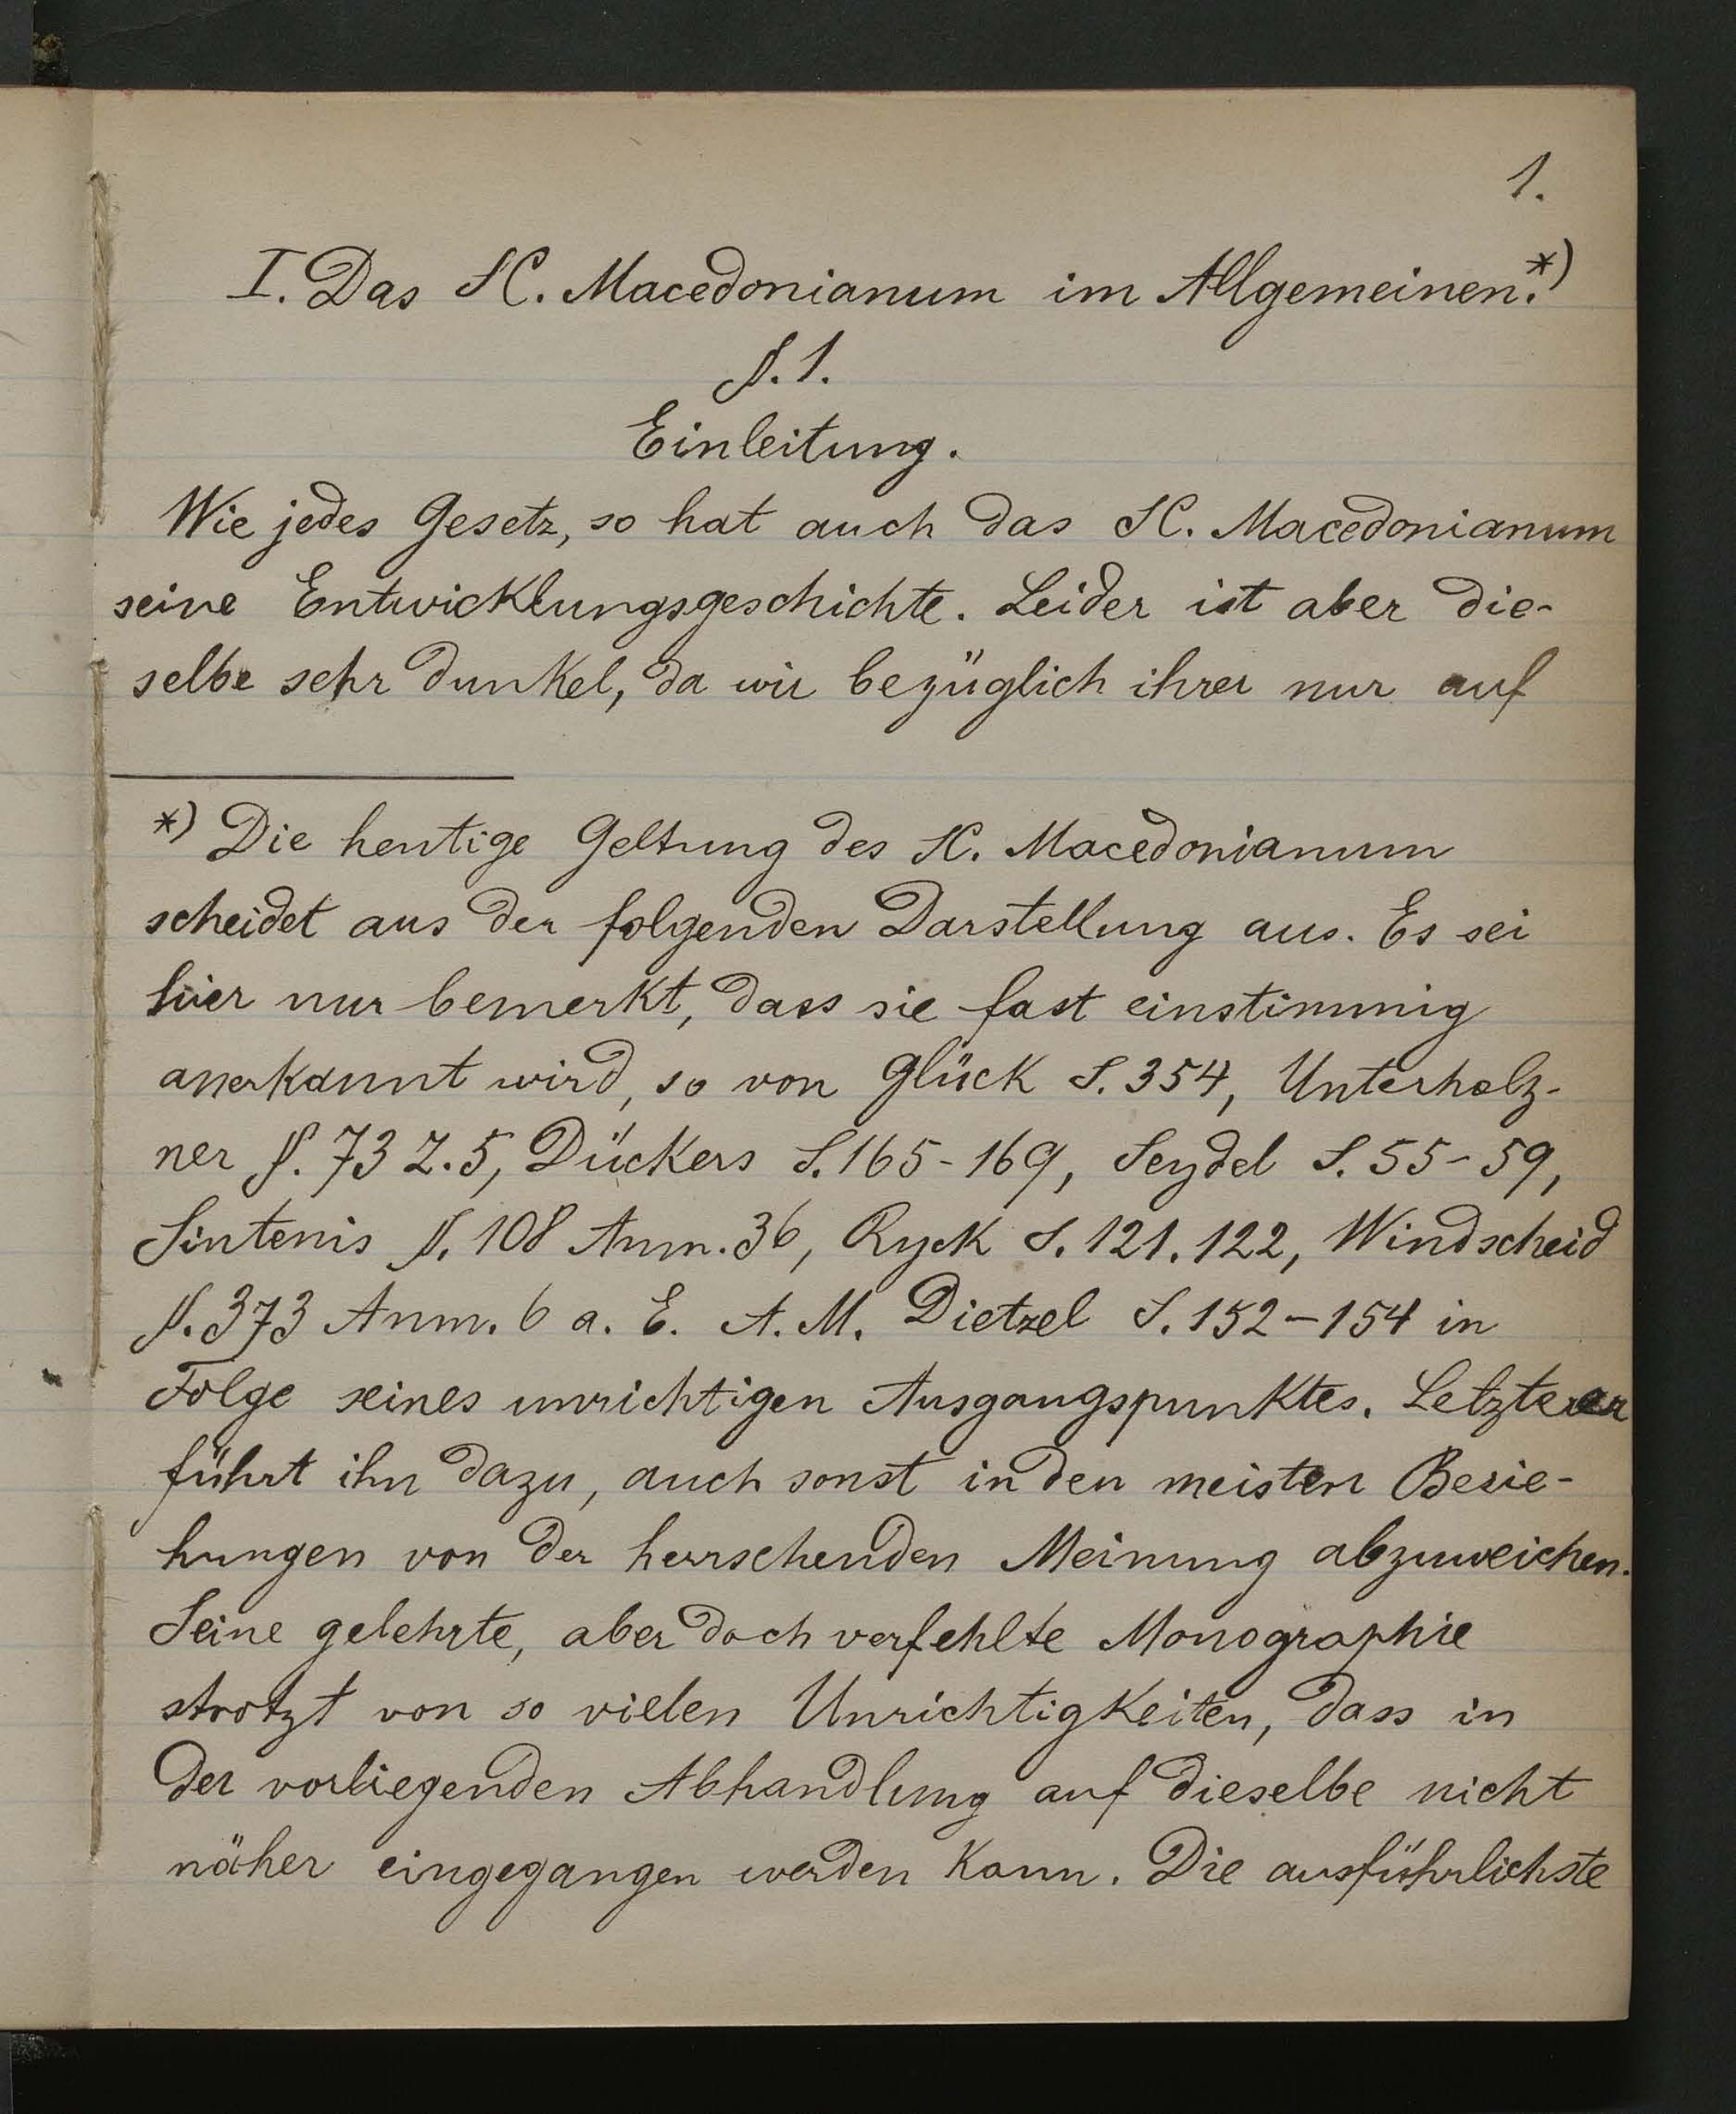 1.
I. Das SC. Macedonianum im Allgemeinen.*)
§. 1.
Einleitung.
Wie jedes Gesetz, so hat auch das SC. Macedonianum
seine Entwicklungsgeschichte. Leider ist aber die-
selbe sehr dunkel, da wir bezüglich ihrer nur auf
*) Die heutige Geltung des SC. Macedonianum
scheidet aus der folgenden Darstellung aus. Es sei
hier nur bemerkt, dass sie fast einstimmig
anerkannt wird, so von Glück S. 354, Unterholz-
ner §. 73 Z. 5, Dückers S. 165-169, Seydel S. 55-59,
Sintenis §. 108 Anm. 36, Ryck S. 121. 122, Windscheid
§. 373 Anm. 6 a. E. A. M. Dietzel S. 152-154 in
Folge seines unrichtigen Ausgangspunktes. Letzterer
führt ihn dazu, auch sonst in den meisten Bezie-
hungen von der herrschenden Meinung abzuweichen.
Seine gelehrte, aber doch verfehlte Monographie
strotzt von so vielen Unrichtigkeiten, dass in
der vorliegenden Abhandlung auf dieselbe nicht
näher eingegangen werden kann. Die ausführlichste